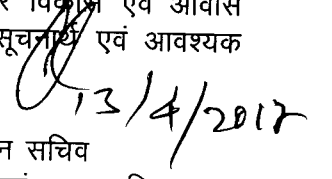 विकास एवं आवास
सूचनार्थ एवं आवश्यक
13/4/2017
न सचिव